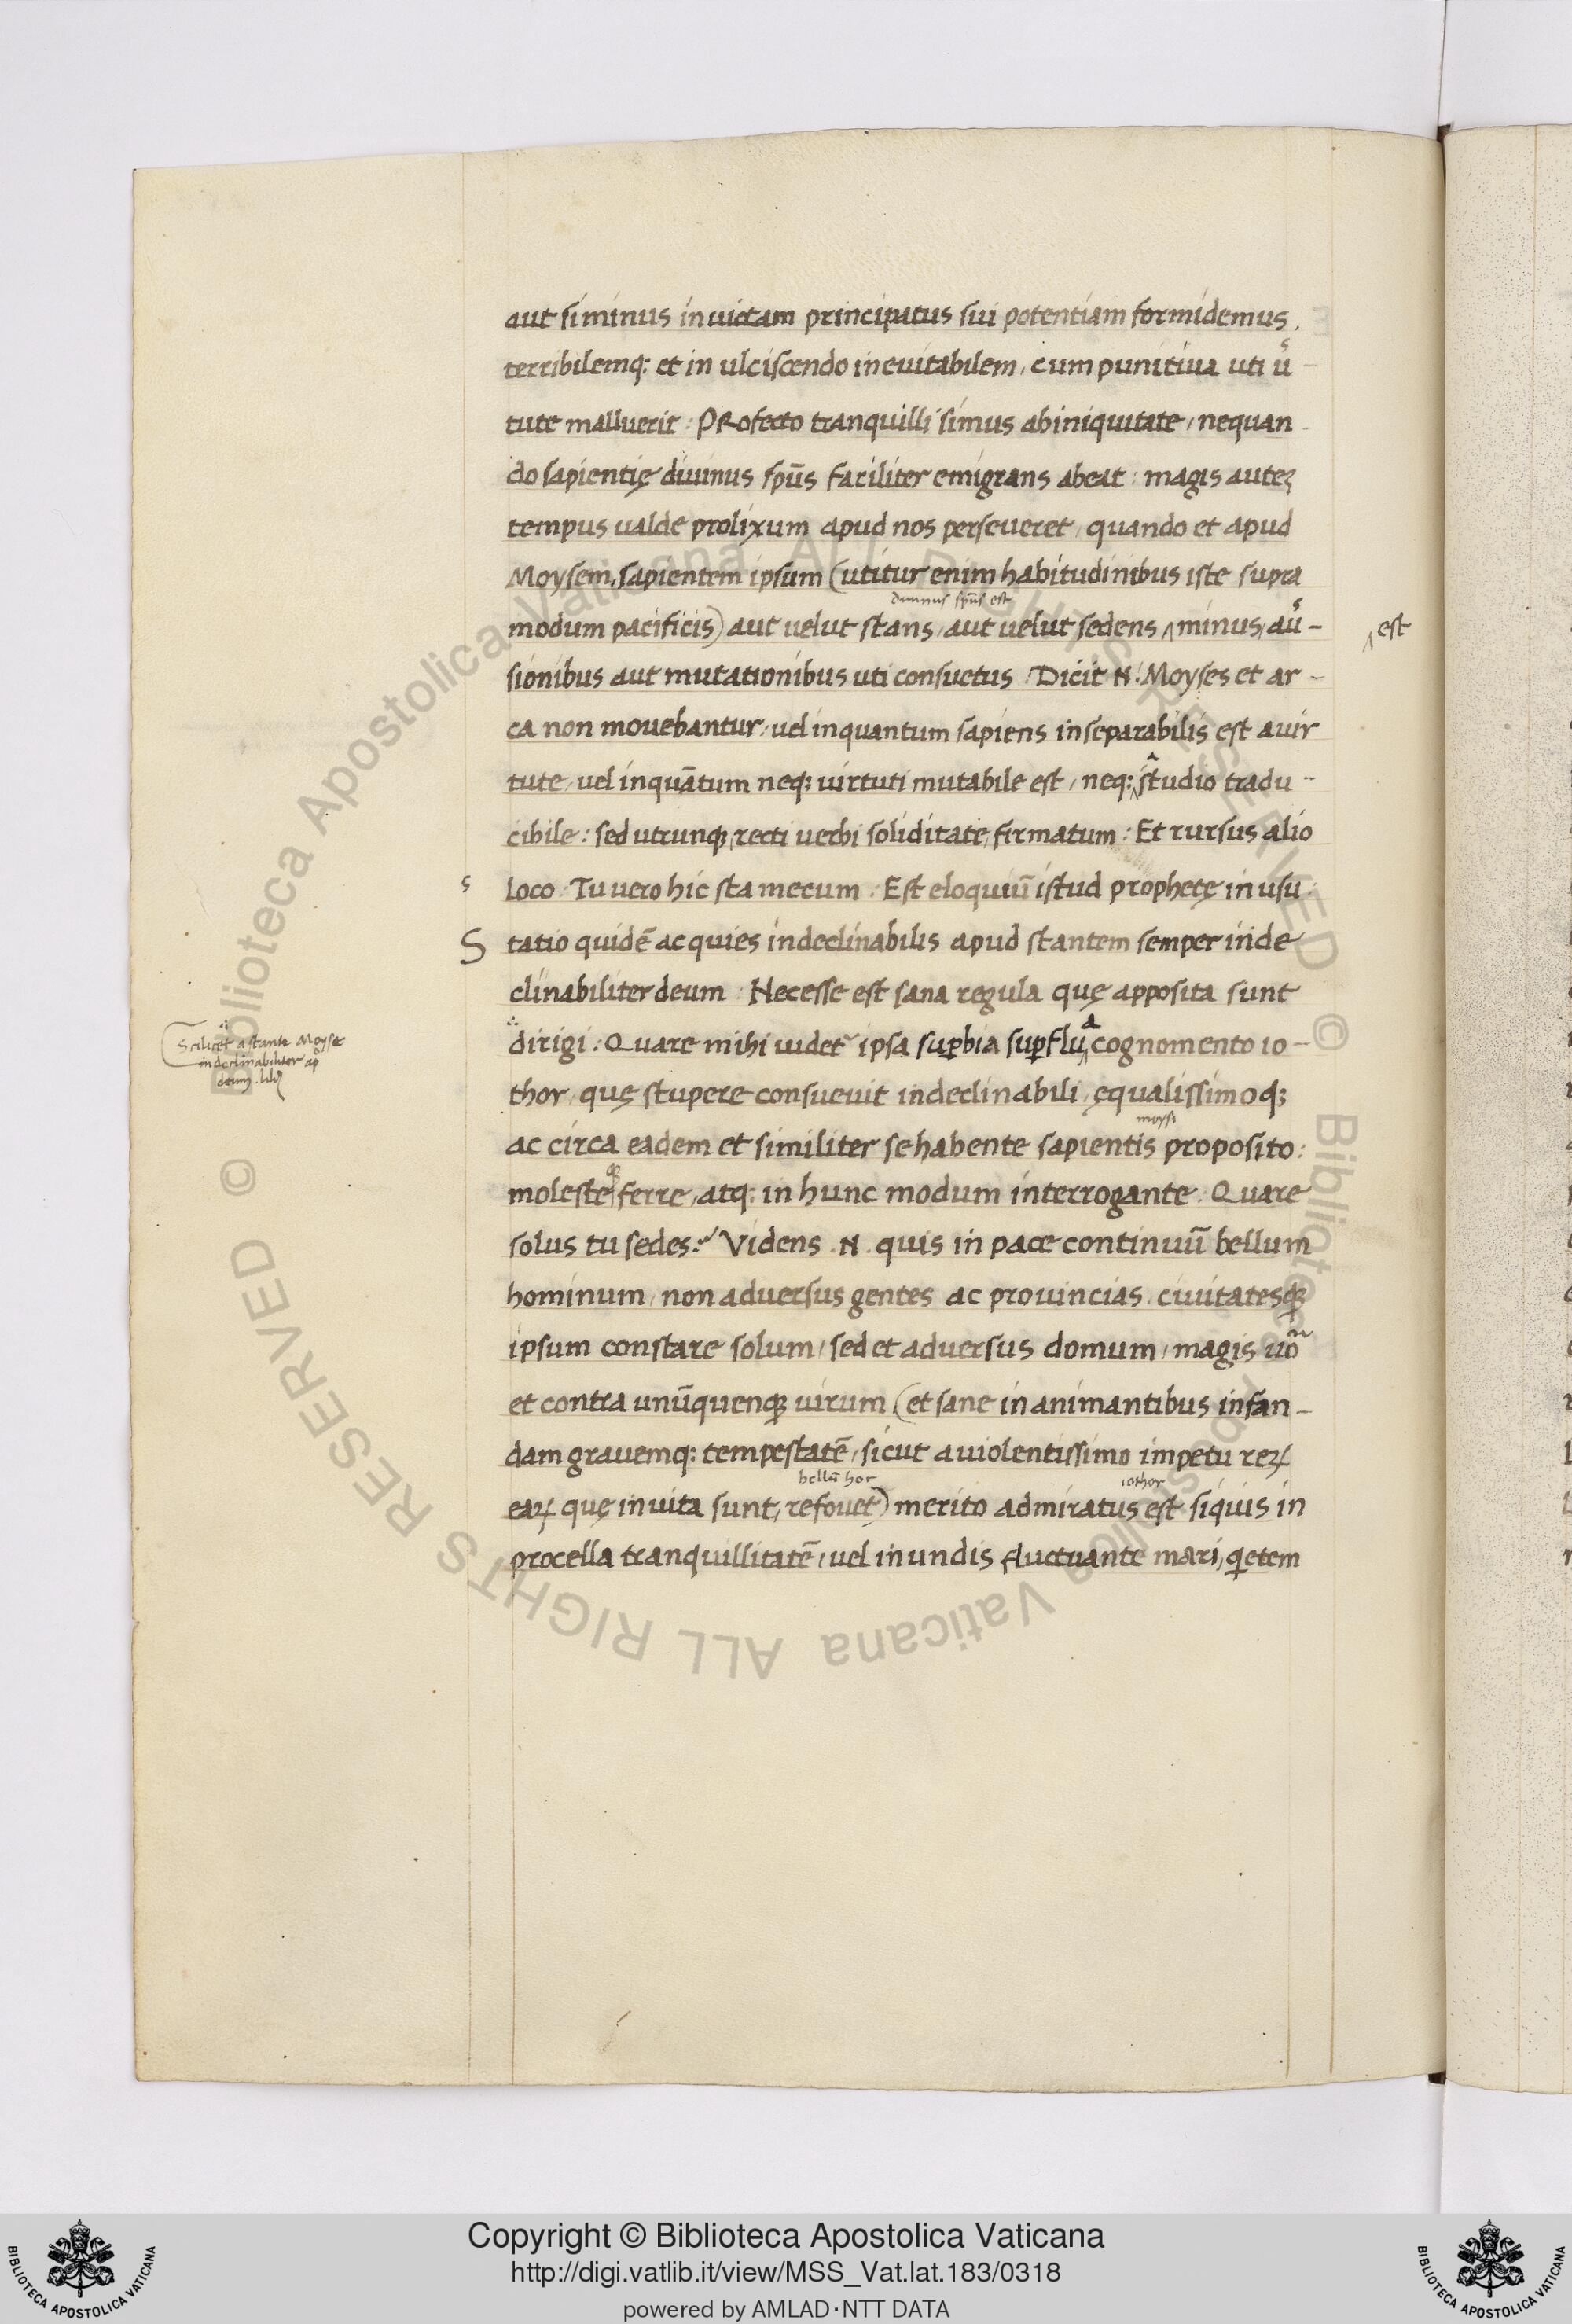 aut si minus inuictam principatus sui potentiam formidemus,
terribilemq: et in ulciscendo ineuitabilem, cum punitiua uti uͥ-
tute malluerit: PRofecto tranquilli simus ab iniquitate, nequan-
do sapientię diuinus spūs faciliter emigrans abeat: magis auteʒ
tempus ualde prolixum apud nos perseueret, quando et apud
Moysem, sapientem ipsum (utitur enim habitudinibus iste supra
diuinus spūs est
modum pacificis) aut uelut stans, aut uelut sedens ^ minus, auͥ-
^ est
sionibus aut mutationibus uti consuetus: Dicit .N. Moyses et ar-
ca non mouebantur, uel inquantum sapiens inseparabilis est a uir
tute, uel inquātum neq; uirtuti mutabile est, neq: studio tradu-
cibile: sed utrunq; recti uerbi soliditate, firmatum: Et rursus alio
s
loco: Tu uero hic sta mecum: Est eloquiū istud prophetę in usu:
S
tatio quidē ac quies indeclinabilis apud stantem semper inde
clinabiliter deum: Necesse est sana regula quę apposita sunt
Scilicet astante Moyse
indeclinabiliter ap
deum
dirigi: Quare mihi uidet ipsa supbia supflua cognomento io-
thor, quę stupere consueuit indeclinabili, ęqualissimoq;
moysi
ac circa eadem et similiter se habente sapientis proposito:
molesteq; ferre, atq: in hunc modum interrogante: Quare
solus tu sedes? Videns .N. quis in pace continuū bellum
hominum, non aduersus gentes ac prouincias, ciuitatesq;
ipsum constare solum, sed et aduersus domum, magis uo
et contra unūquenq; uirum (et sane in animantibus infan-
dam grauemq: tempestatē, sicut a uiolentissimo impetu reꝝ
bellū hor iothor
eaꝝ quę in uita sunt, refouet) merito admiratus est siquis in
procella tranquillitatē, uel in undis fluctuante mari, qetem
Copyright © Biblioteca Apostolica Vaticana
http://digi.vatlib.it/view/MSS_Vat.lat.183/0318
powered by AMLAD·NTT DATA
BIBLIOTECA APOSTOLICA VATICANA
BIBLIOTECA APOSTOLICA VATICANA
© Biblioteca Apostolica Vaticana ALL RIGHTS RESERVED
© Biblioteca Apostolica Vaticana ALL RIGHTS RESERVED